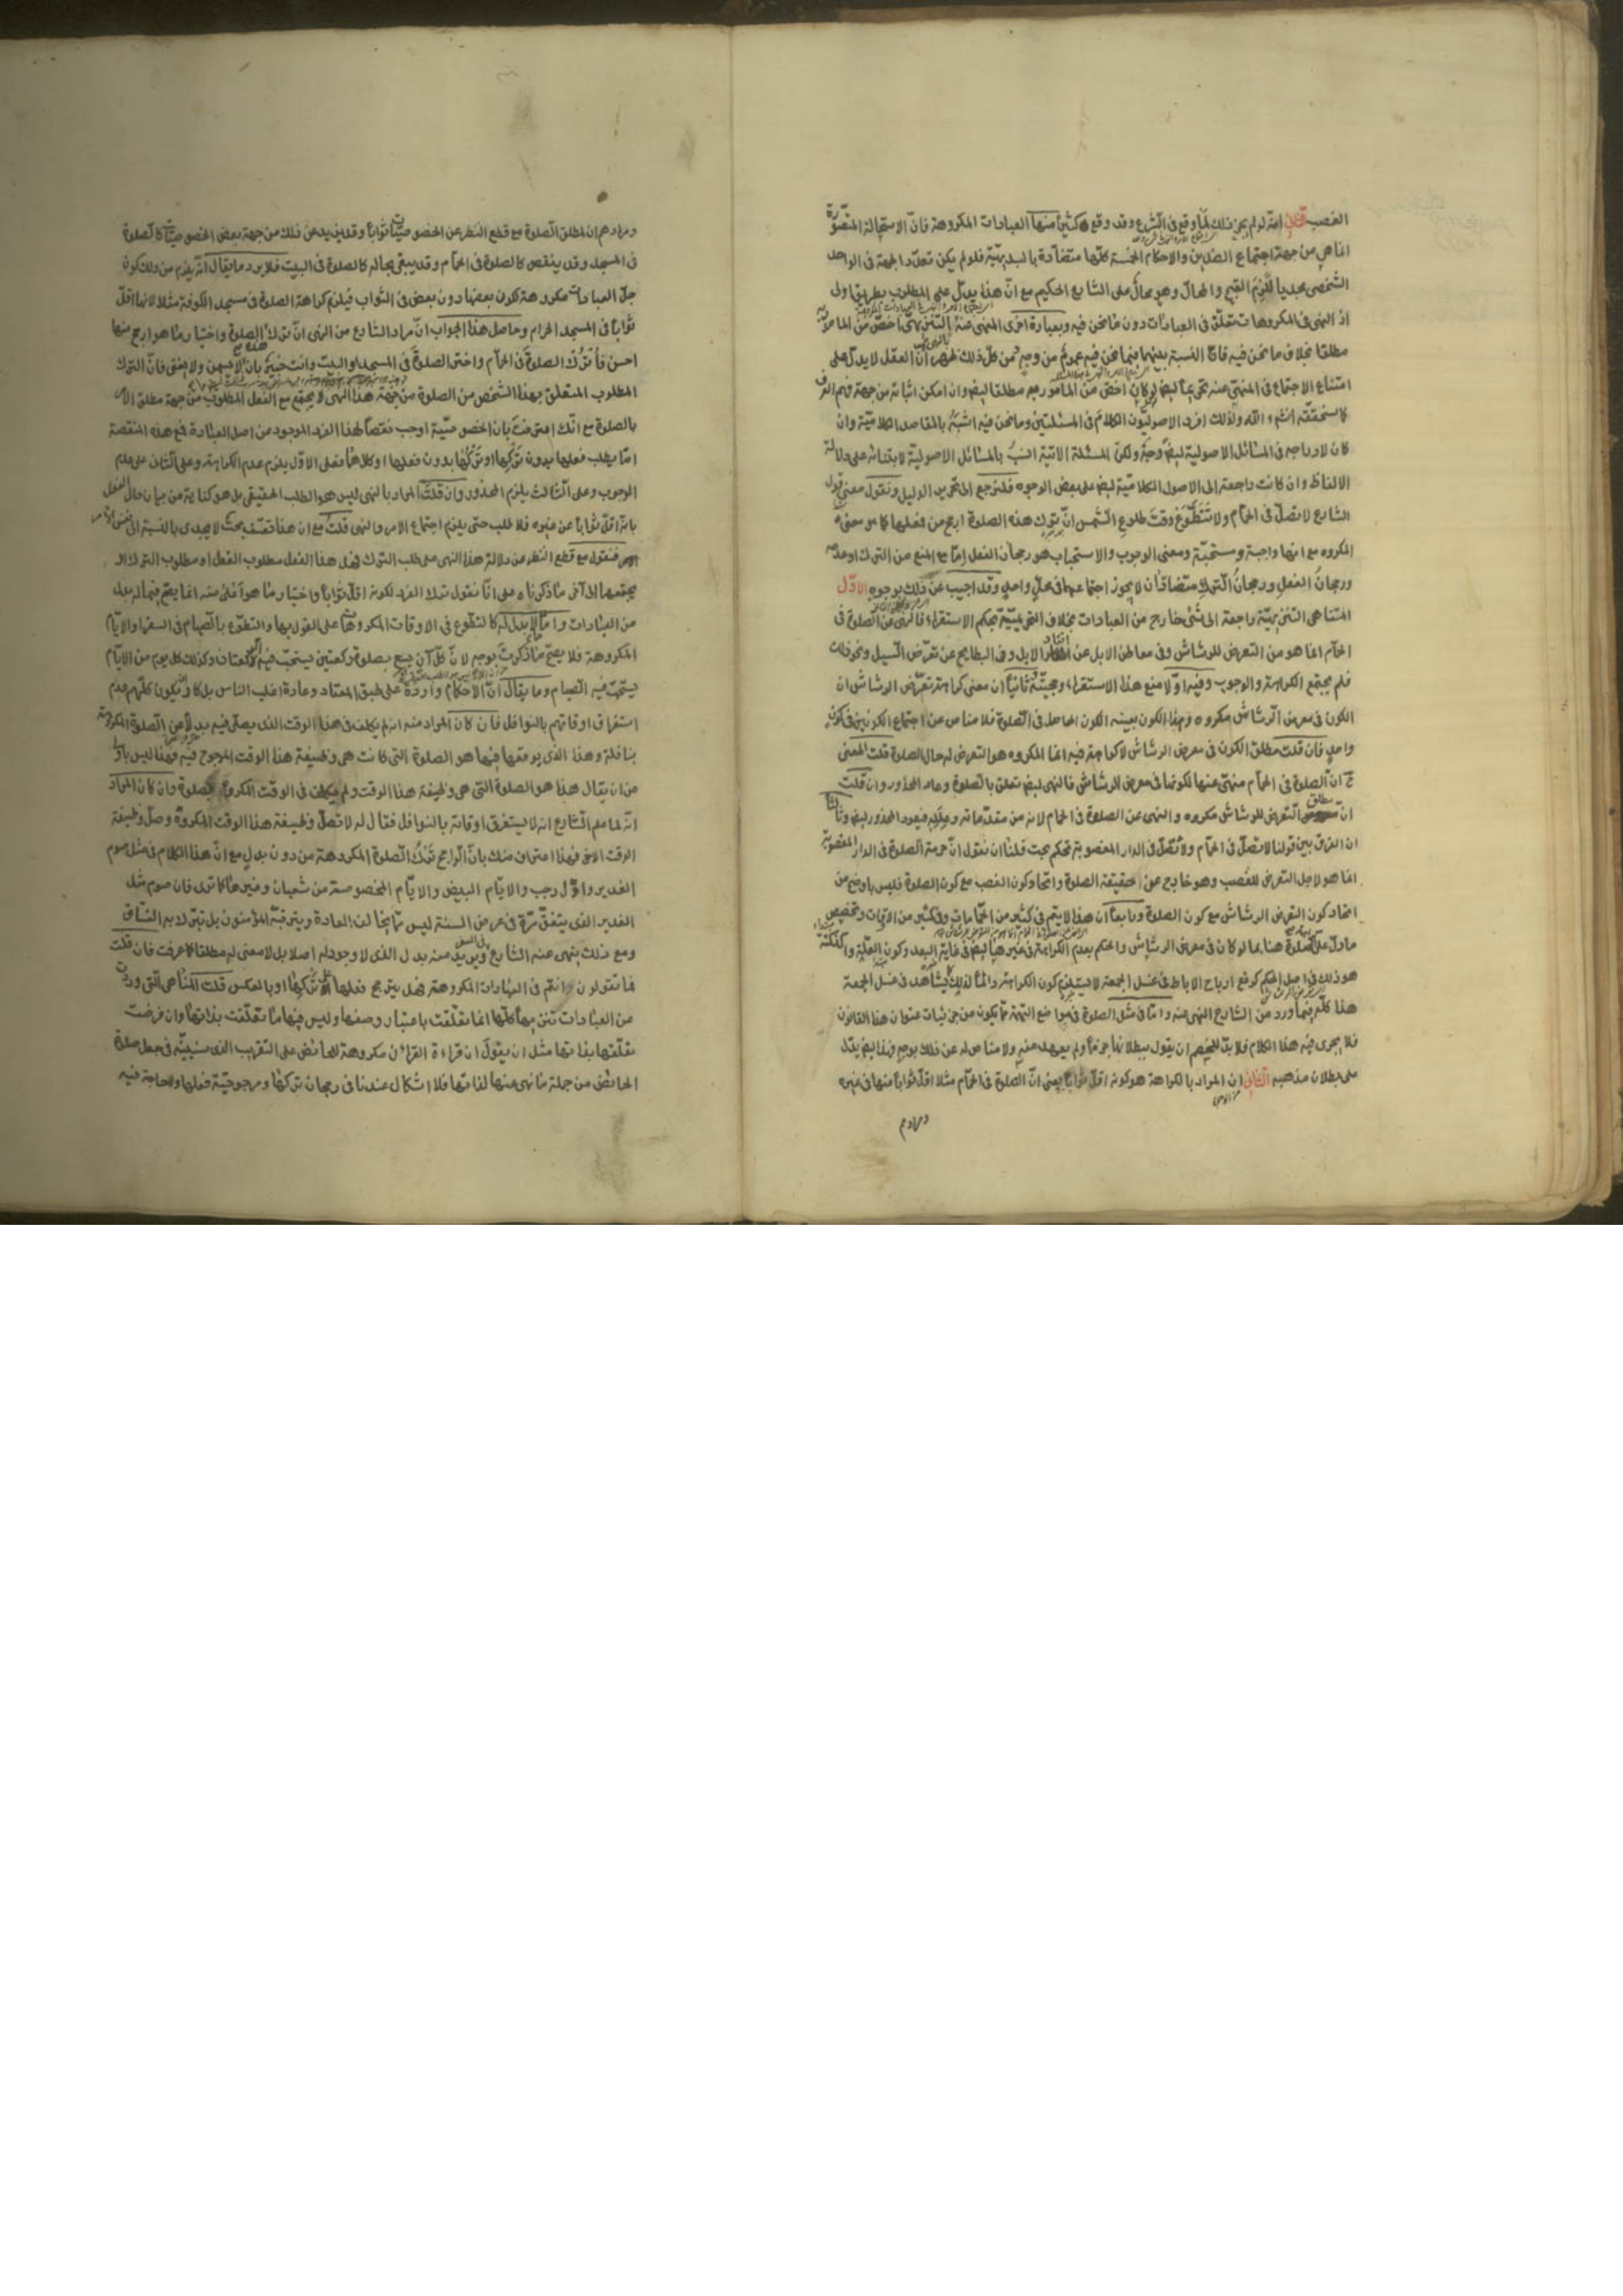 الغصب الثاني انه لو لم يجز ذلك لما وقع في الشرع وقد وقع كثيرا منها العبادات المكروهة فان الاستحالة المتصورة
انما هي من جهة اجتماع الضدين والاحكام الخمسة كلها متضادة بالبديهة فلو لم يكن تعدد الجهة في الواحد
الشخصي مجديا للزم القبيح والمحال وهو محال على الشارع الحكيم مع ان هذا يدل على المطلوب بطريق اولى
اذ النهي في المكروهات تعلق في العبادات دون ما نحن فيه وبعبارة اخرى المنهي عنه بالنهي التنزيهي اخص من المامور به
مطلقا بخلاف ما نحن فيه فان النسبة بينهما فيما نحن فيه عموم من وجه ومن كل ذلك ظهر ان العقل لا يدل على
امتناع الاجتماع في المنهي عنه تحريما ايضا لو كان اخص من المامور به مطلقا ايضا وان امكن اثباته من جهة فهم العرف
كما سنحققه انشاء الله ولذلك افرد الاصوليون الكلام في المسئلتين وما نحن فيه اشبه بالمقاصد الكلامية وان
كان لادراجه في المسائل الاصولية ايضا وجه ولكن المسئلة الاتية انسب بالمسائل الاصولية لابتنائه على دلالة
الالفاظ وان كانت راجعة الى الاصول الكلامية ايضا على بعض الوجوه فلنرجع الى تحرير الدليل ونقول معنى قول
الشارع لا تصل في الحمام ولا تتطوع وقت طلوع الشمس ان ترك هذه الصلوة ارجح من فعلها كما هو معنى
المكروه مع انها واجبة ومستحبة ومعنى الوجوب والاستحباب هو رجحان الفعل اما مع المنع من الترك او عدمه
ورجحان الفعل ورجحان الترك متضادان لا يجوز اجتماعهما في محل واحد وقد اجيب عن ذلك بوجوه الاول
المناهي التنزيهية راجعة الى شئ خارج من العبادات بخلاف التحريمية بحكم الاستقراء فالنهي عن الصلوة في
الحمام انما هو من التعرض للرشاش وفي معاطن الابل عن انفار الابل وفي البطايح عن تعرض السيل ونحو ذلك
فلم يجتمع الكراهة والوجوب وفيه اولا منع هذا الاستقراء وحجيته وثانيا ان معنى كراهة تعرض الرشاش ان
الكون في معرض الرشاش مكروه وهذا الكون بعينه الكون الحاصل في الصلوة فلا مناص عن اجتماع الكونين في كون
واحد فان قلت مطلق الكون في معرض الرشاش لا كراهة فيه انما المكروه هو التعرض له حال الصلوة قلت المعنى
ح ان الصلوة في الحمام منهي عنها لكونها في معرض الرشاش فالنهي ايضا تعلق بالصلوة وعاد المحذور وان قلت
ان مطلق التعرض للرشاش مكروه والنهي عن الصلوة في الحمام لانه من مقدماته وعلله فيعود المحذور ايضا وثالثا
ان الفرق بين قولنا لا تصل في الحمام ولا تصل في الدار المغصوبة تحكم بحت فلنا ان نقول ان حرمة الصلوة في الدار المغصوبة
انما هو لاجل التعرض للغصب وهو خارج عن حقيقة الصلوة واتحاد كون الغصب مع كون الصلوة فليس باوضح من
اتحاد كون التعرض الرشاش مع كون الصلوة ورابعا ان هذا لا يتم في كثير من الحمامات وفي كثير من الاوقات وتخصيص
ما دل على كراهة الصلوة هنا بما لو كان في معرض الرشاش والحكم بعدم الكراهة في غيرها ايضا في غاية البعد وكون العلة والنكتة
هو ذلك في اصل الحكم كرفع ارياح الاباط في غسل الجمعة لا يستلزم كون الكراهة دائما لذلك كما يشاهد في غسل الجمعة
هذا كله فيما ورد من الشارع النهي عنه واما في مثل الصلوة في مواضع التهمة مما يكون من جزئيات عنوان هذا القانون
فلا يجري فيه هذا الكلام فلا بد للخصم ان يقول ببطلانها جزما ولم يعهد منه ولا مناص له عن ذلك بوجه فهذا ايضا يدل
على بطلان مذهبه الثاني ان المراد بالكراهة هو كونه اقل ثوابا يعني ان الصلوة في الحمام مثلا اقل ثوابا منها في غيره
ومرادهم
ومرادهم ان لمطلق الصلوة مع قطع النظر عن الخصوصيات ثوابا وقد يزيد عن ذلك من جهة بعض الخصوصيات كالصلوة
في المسجد وقد ينقص كالصلوة في الحمام وقد يبقى بحاله كالصلوة في البيت فلا يرد ما يقال انه يلزم من ذلك كون
جل العبادات مكروهة لكون بعضها دون بعض في الثواب فيلزم كراهة الصلوة في مسجد الكوفة مثلا لانها اقل
ثوابا في المسجد الحرام وحاصل هذا الجواب ان مراد الشارع من النهي ان ترك هذه الصلوة واختيار ما هو ارجح منها
احسن فاترك الصلوة في الحمام واختر الصلوة في المسجد او البيت وانت خبير بان لا يسمن ولا يغني فان الترك
المطلوب المتعلق بهذا الشخص من الصلوة من جهة هذا النهي لا يجتمع مع الفعل المطلوب من جهة مطلق الامر
بالصلوة مع انك اعترفت بان الخصوصية اوجب نقصا لهذا الفرد الموجود عن اصل العبادة فمع هذه المنقصة
اما يطلب فعلها بدون تركها او تركها بدون فعلها او كلاهما فعلى الاول يلزم عدم الكراهة وعلى الثاني عدم
الوجوب وعلى الثالث يلزم المحذور وان قلت المراد بالنهي ليس هو الطلب الحقيقي بل هو كناية عن بيان حال الفعل
بانه اقل ثوابا عن غيره فلا طلب حتى يلزم اجتماع الامر والنهي قلت مع ان هذا تعسف بحت لا يجدي بالنسبة الى نفس الامر
فنقول مع قطع النظر عن دلالة هذا النهي على طلب الترك فهل هذا الفعل مطلوب الفعل او مطلوب الترك او
يجتمعهما الى آخر ما ذكرناه وعلى انا نقول ترك الفرد لكونه اقل ثوابا واختيار ما هو اعلى منه انما يصح فيما له بدل
من العبادات واما لا بدل له كالتطوع في الاوقات المكروهة على القول بها والتطوع بالصيام في السفر والايام
المكروهة فلا يصح ما ذكرت بوجه لان كل آن يسع بصلوة ركعتين يستحب فيه ركعتان وكذلك كل يوم من الايام
يستحب فيه الصيام وما يقال ان الاحكام واردة على طبق المعتاد وعادة اغلب الناس بل كاد يكون كلهم عدم
استغراق اوقاتهم بالنوافل فان كان المراد منه انه لم يكلف في هذا الوقت الذي يصلي فيه بدلا من الصلوة المكروهة
بنافلة وهذا الذي يوقعها فيها هو الصلوة التي كانت هي وظيفة هذا الوقت المرجوح فيه فهذا ليس باولى
من ان يقال هذا هو الصلوة التي هي وظيفة هذا الوقت ولم يكلف في الوقت المكروه بصلوة وان كان المراد
انه لما علم الشارع انه لا يستغرق اوقاته بالنوافل فقال له لا تصل وظيفة هذا الوقت المكروه وصل وظيفة
الوقت الاخر فهذا اعتراف منك بان الراجح ترك الصلوة المكروهة من دون بدل مع ان هذا الكلام في مثل صوم
الغدير واول رجب والايام البيض والايام المخصوصة من شعبان وغيرها كما ترى فان صوم مثل
الغدير الذي يتفق مرة في عرض السنة ليس مما يخالف العادة ويترقبه المؤمنون بل يتولا به الشاق
ومع ذلك ينهى عنه الشارع في السفر ويريد منه بدل الذي لا وجود له اصلا بل لا معنى له مطلقا كما عرفت فان قلت
فما تقولون انتم في العبادات المكروهة فهل يترجح فعلها على تركها او بالعكس قلت المناهي التي وردت
عن العبادات تنزيها كلها انما تعلقت باعتبار وصفها وليس فيها ما تعلقت بذاتها وان فرضت
تعلقها بذاتها مثل ان يقول ان قراءة القرآن مكروهة للحائض على التقريب الذي سنبينه في جعل صلوة
الحائض من جملة ما نهي عنها لذاتها فلا اشكال عندنا في رجحان تركها ومرجوحية فعلها ولا حاجة فيه